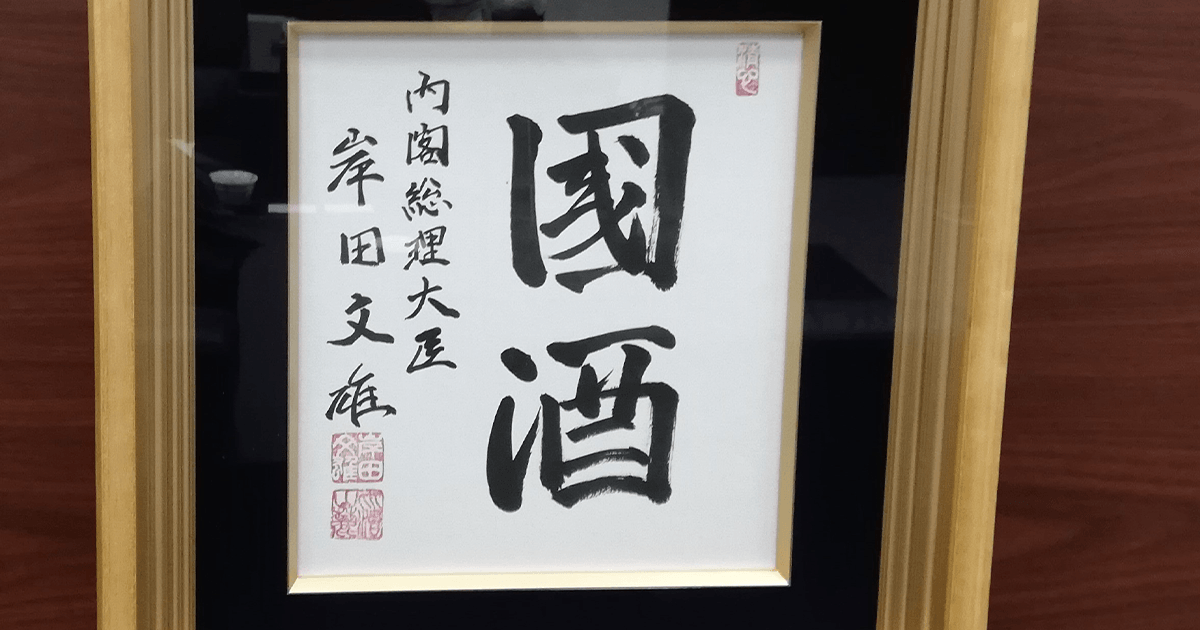 國酒
内閣総理大臣
岸田文雄
岸田文雄